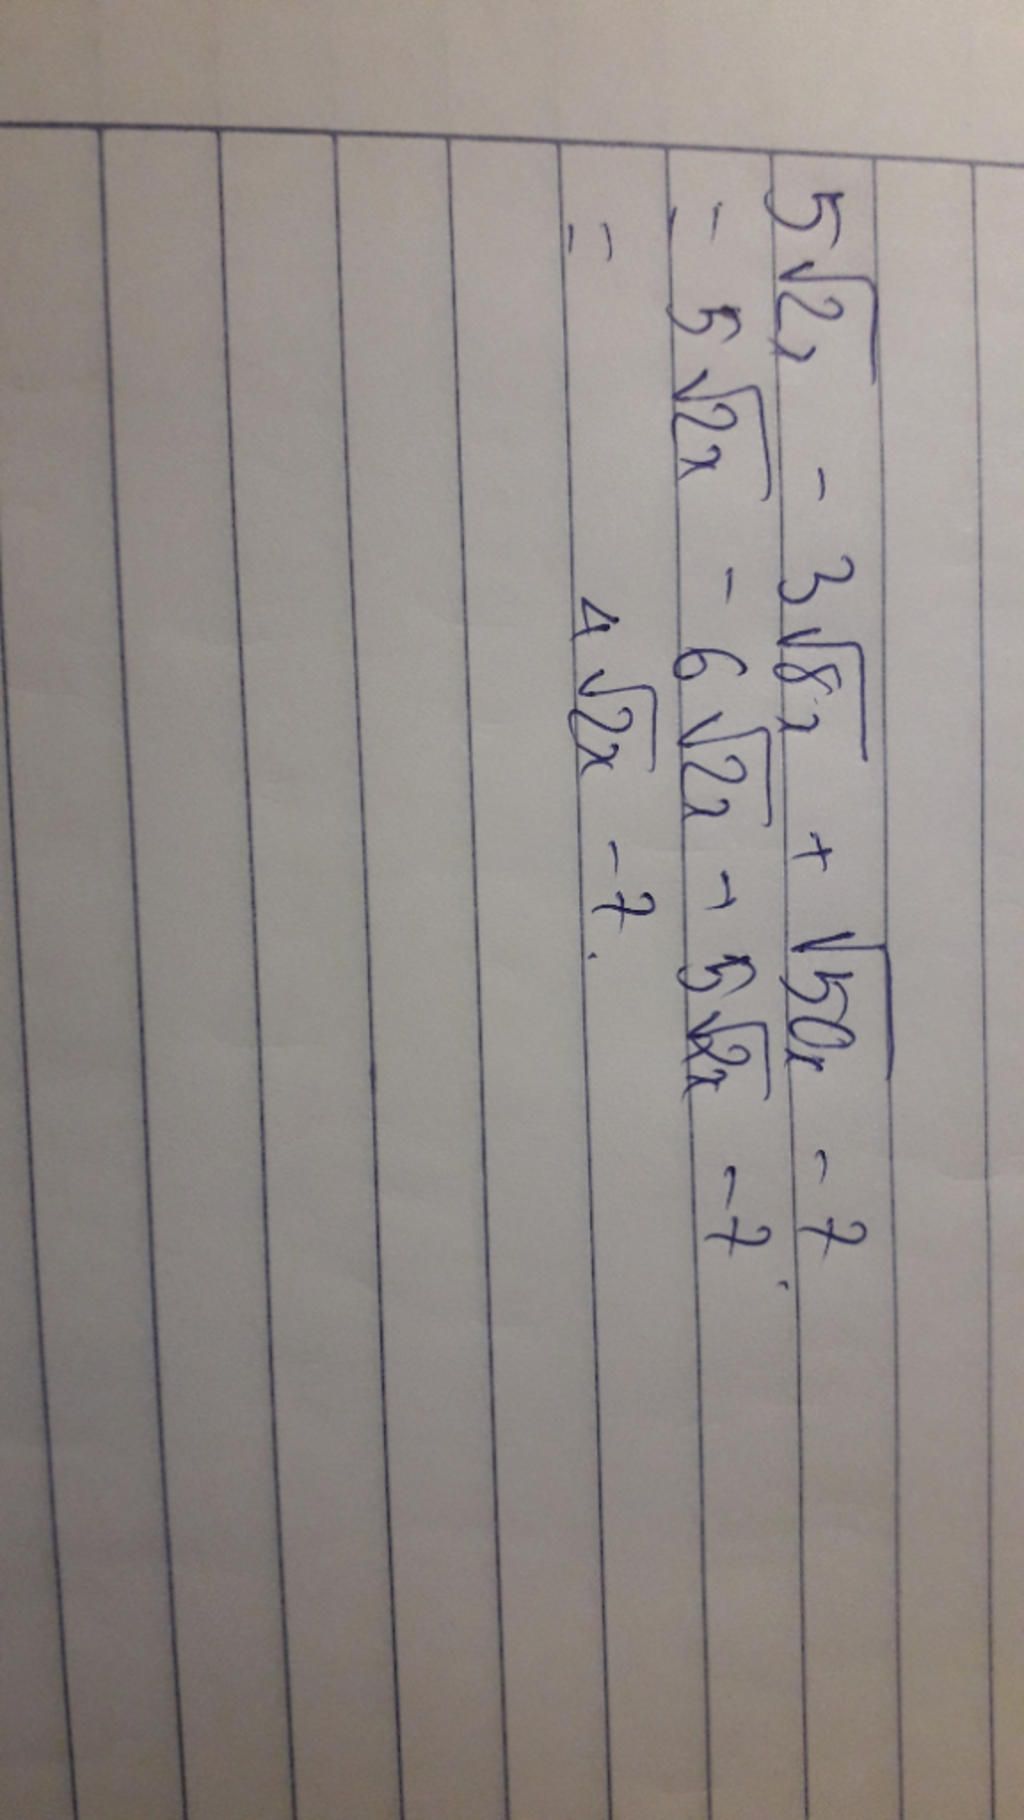 5√2x - 3√8x + √50x - 7
= 5√2x - 6√2x + 5√2x - 7.
= 4√2x - 7.